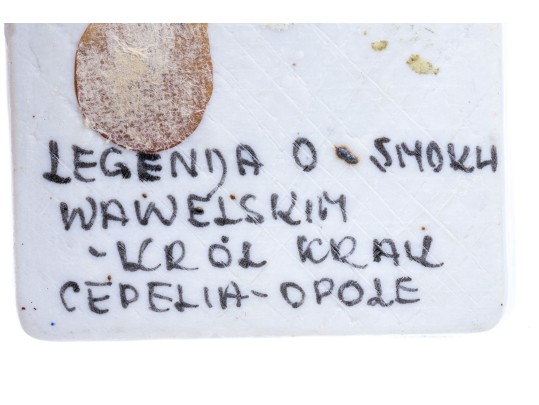 LEGENDA O SMOKU
WAWELSKIM
-KRÓL KRAK
CEPELIA-OPOLE